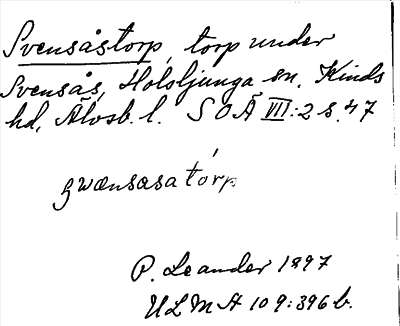 Svensåstorp, torp under
Svensås, Holsljunga sn, Kinds
hd, Älvsb. l. SOÄ VII:2 s. 47
swænsasa tórp
P. Leander 1897
ULMA 109:396 b.